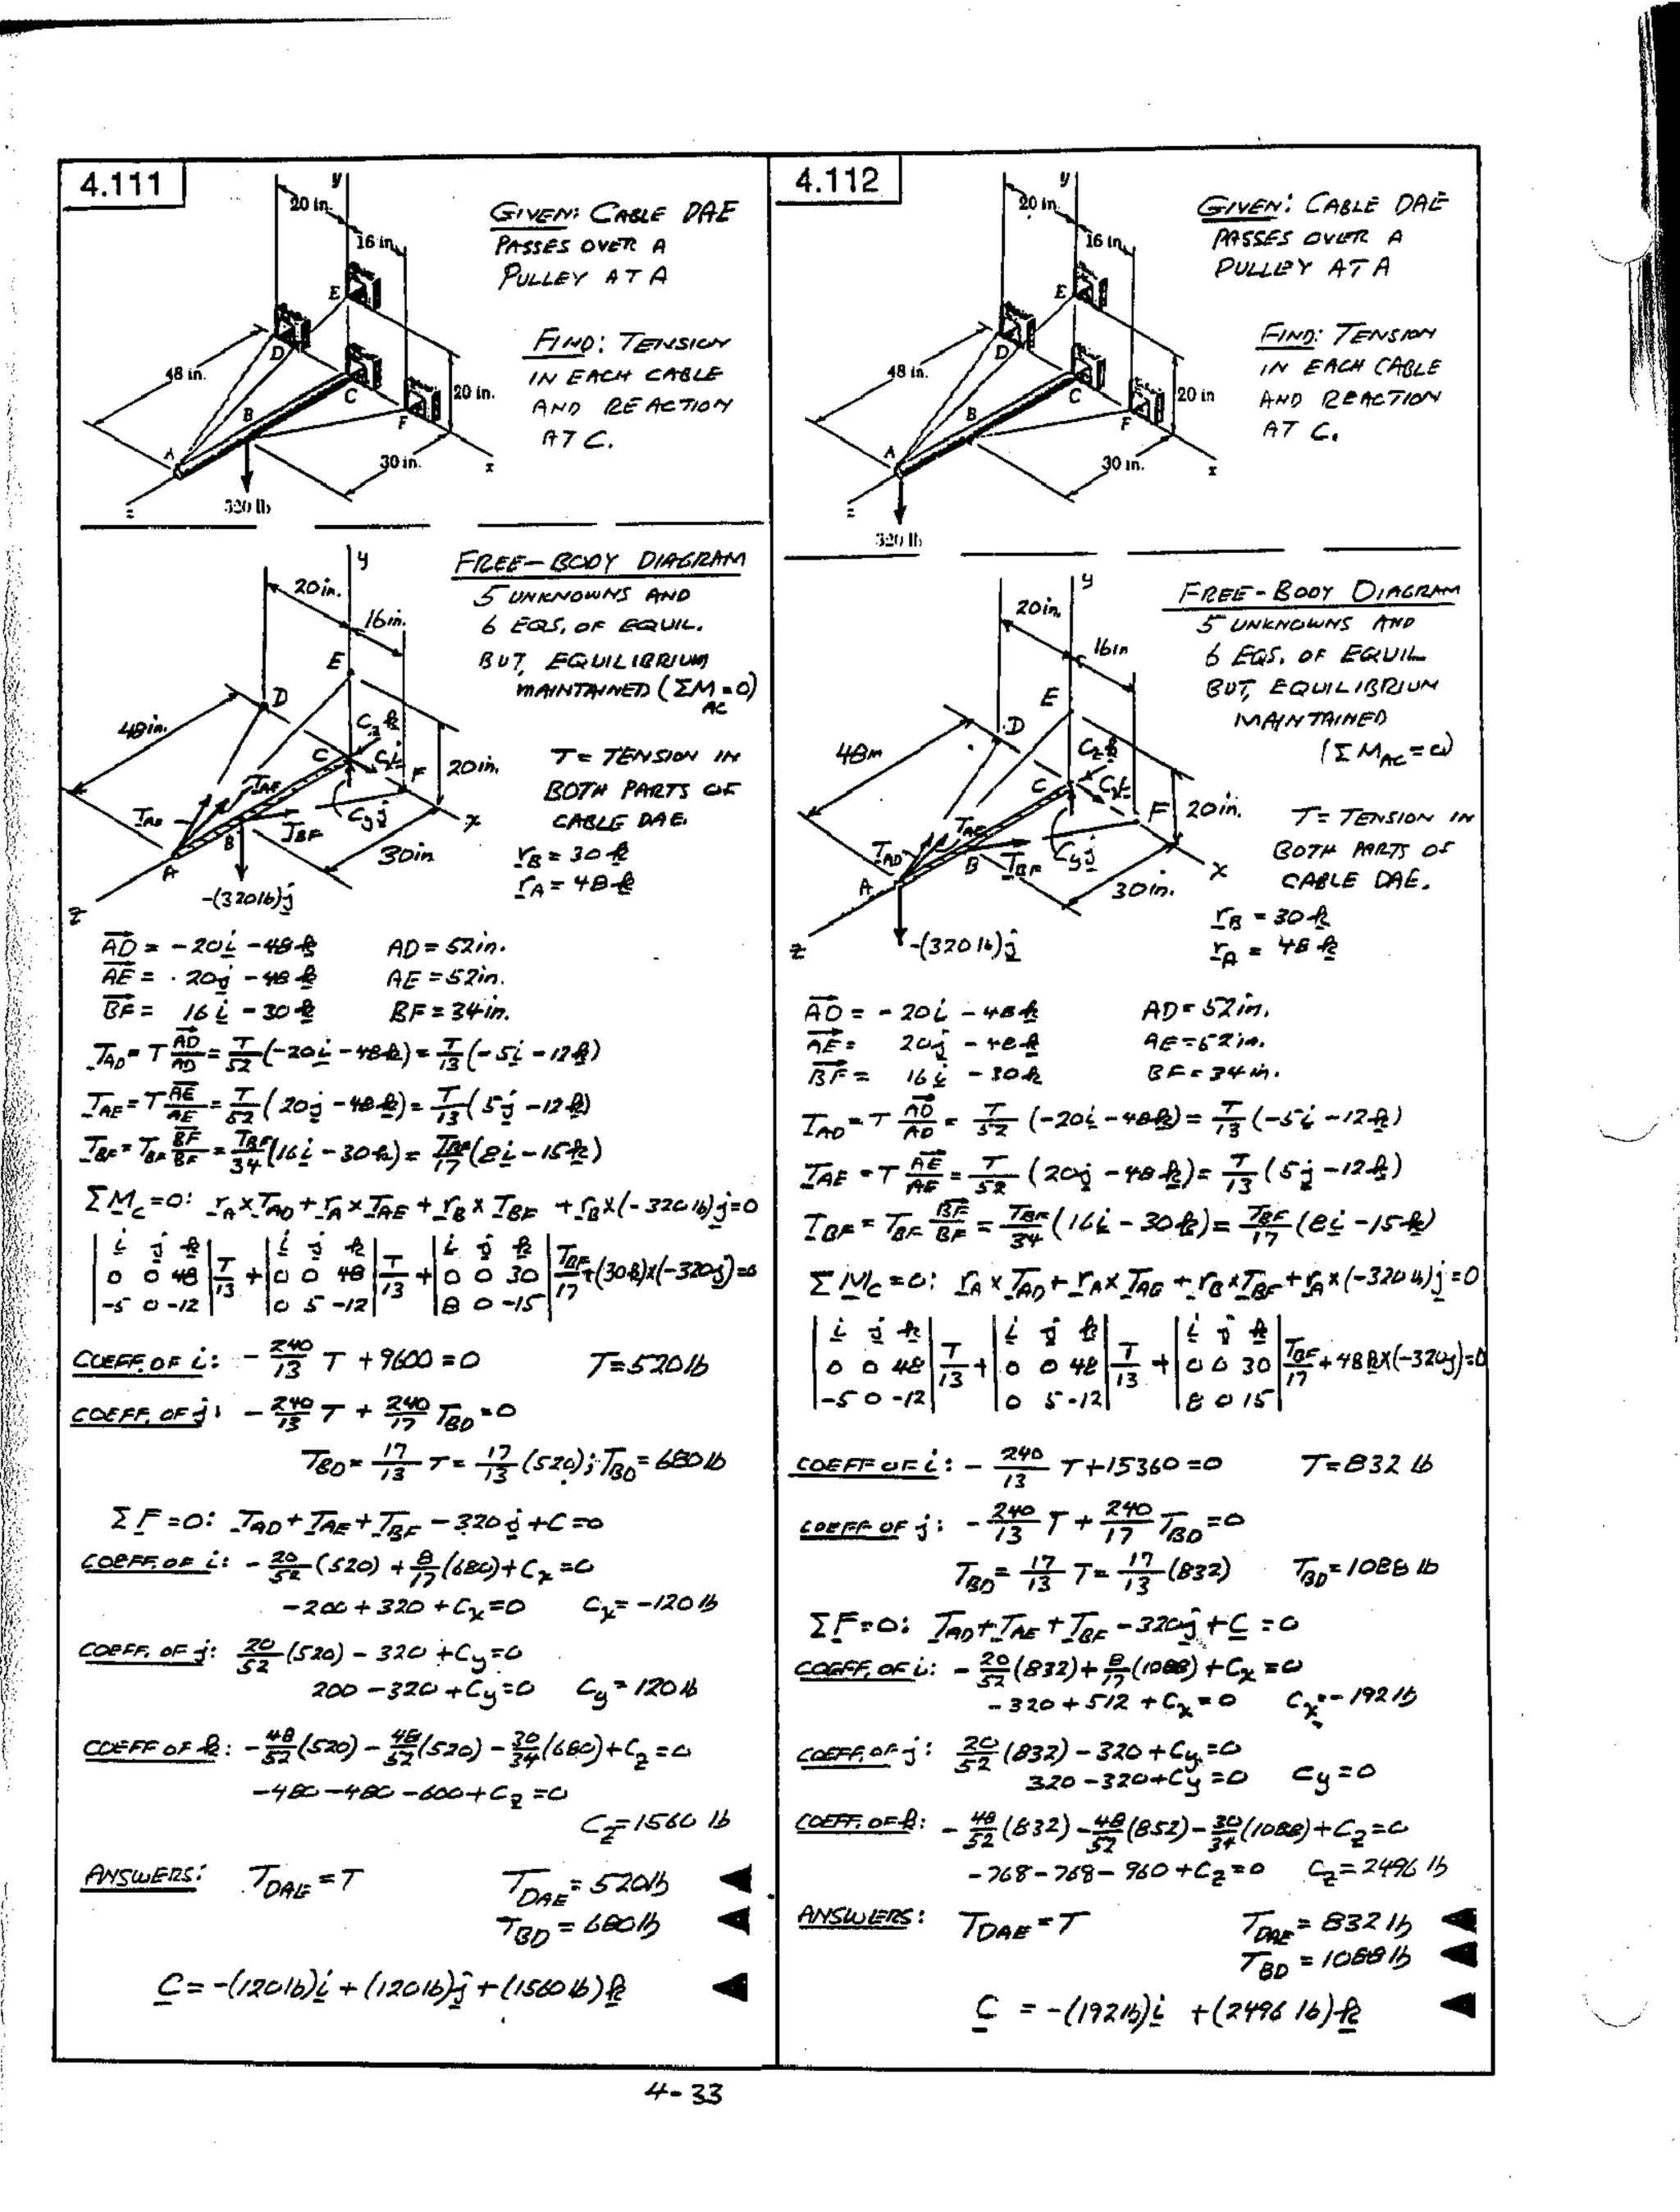 4.111
20 in.
y
16 in.
E
D
48 in.
C
20 in.
B
F
A
30 in.
x
z
320 lb
GIVEN: CABLE DAE
PASSES OVER A
PULLEY AT A
FIND: TENSION
IN EACH CABLE
AND REACTION
AT C.
FREE-BODY DIAGRAM
5 UNKNOWNS AND
6 EQS. OF EQUIL.
BUT EQUILIBRIUM
MAINTAINED (ΣM_AC = 0)
T = TENSION IN
BOTH PARTS OF
CABLE DAE.
r_B = 30 k
r_A = 48 k
y
20 in.
16 in.
E
D
48 in.
C_z k
C
C_x i
F
20 in.
T_AE
T_AD
C_y j
x
B
T_BF
30 in
A
-(320 lb)j
z
AD = -20i -48k AD = 52 in.
AE = 20j -48k AE = 52 in.
BF = 16i -30k BF = 34 in.
T_AD = T AD/AD = T/52 (-20i -48k) = T/13 (-5i -12k)
T_AE = T AE/AE = T/52 (20j -48k) = T/13 (5j -12k)
T_BF = T_BF BF/BF = T_BF/34 (16i -30k) = T_BF/17 (8i -15k)
ΣM_C = 0: r_A × T_AD + r_A × T_AE + r_B × T_BF + r_B × (-320 lb)j = 0
|i j k| |i j k| |i j k|
|0 0 48| T/13 + |0 0 48| T/13 + |0 0 30| T_BF/17 + (30k)×(-320j) = 0
|-5 0 -12| |0 5 -12| |8 0 -15|
COEFF. OF i: - 240/13 T + 9600 = 0 T = 520 lb
COEFF. OF j: - 240/13 T + 240/17 T_BD = 0
T_BD = 17/13 T = 17/13 (520); T_BD = 680 lb
ΣF = 0: T_AD + T_AE + T_BF - 320j + C = 0
COEFF. OF i: - 20/52 (520) + 8/17 (680) + C_x = 0
-200 + 320 + C_x = 0 C_x = -120 lb
COEFF. OF j: 20/52 (520) - 320 + C_y = 0
200 - 320 + C_y = 0 C_y = 120 lb
COEFF OF k: - 48/52 (520) - 48/52 (520) - 30/34 (680) + C_z = 0
-480 -480 -600 + C_z = 0
C_z = 1560 lb
ANSWERS: T_DAE = T T_DAE = 520 lb ◀
T_BD = 680 lb ◀
C = -(120 lb)i + (120 lb)j + (1560 lb)k ◀
4.112
20 in.
y
16 in.
E
D
48 in.
C
20 in
B
F
A
30 in.
x
z
320 lb
GIVEN: CABLE DAE
PASSES OVER A
PULLEY AT A
FIND: TENSION
IN EACH CABLE
AND REACTION
AT C.
FREE-BODY DIAGRAM
5 UNKNOWNS AND
6 EQS. OF EQUIL
BUT, EQUILIBRIUM
MAINTAINED
(ΣM_AC = 0)
T = TENSION IN
BOTH PARTS OF
CABLE DAE.
r_B = 30 k
r_A = 48 k
y
20 in.
16 in
E
D
48 in
C_z k
C
C_x i
F
20 in.
T_AE
T_AD
C_y j
x
B
T_BF
30 in.
A
-(320 lb)j
z
AD = -20i -48k AD = 52 in.
AE = 20j -48k AE = 52 in.
BF = 16i -30k BF = 34 in.
T_AD = T AD/AD = T/52 (-20i -48k) = T/13 (-5i -12k)
T_AE = T AE/AE = T/52 (20j -48k) = T/13 (5j -12k)
T_BF = T_BF BF/BF = T_BF/34 (16i -30k) = T_BF/17 (8i -15k)
ΣM_C = 0: r_A × T_AD + r_A × T_AE + r_B × T_BF + r_A × (-320 lb)j = 0
|i j k| |i j k| |i j k|
|0 0 48| T/13 + |0 0 48| T/13 + |0 0 30| T_BF/17 + 48k×(-320j) = 0
|-5 0 -12| |0 5 -12| |8 0 15|
COEFF OF i: - 240/13 T + 15360 = 0 T = 832 lb
COEFF OF j: - 240/13 T + 240/17 T_BD = 0
T_BD = 17/13 T = 17/13 (832) T_BD = 1088 lb
ΣF = 0: T_AD + T_AE + T_BF - 320j + C = 0
COEFF. OF i: - 20/52 (832) + 8/17 (1088) + C_x = 0
-320 + 512 + C_x = 0 C_x = -192 lb
COEFF. OF j: 20/52 (832) - 320 + C_y = 0
320 - 320 + C_y = 0 C_y = 0
COEFF. OF k: - 48/52 (832) - 48/52 (852) - 30/34 (1088) + C_z = 0
-768 - 768 - 960 + C_z = 0 C_z = 2496 lb
ANSWERS: T_DAE = T T_DAE = 832 lb ◀
T_BD = 1088 lb ◀
C = -(192 lb)i + (2496 lb)k ◀
4-33